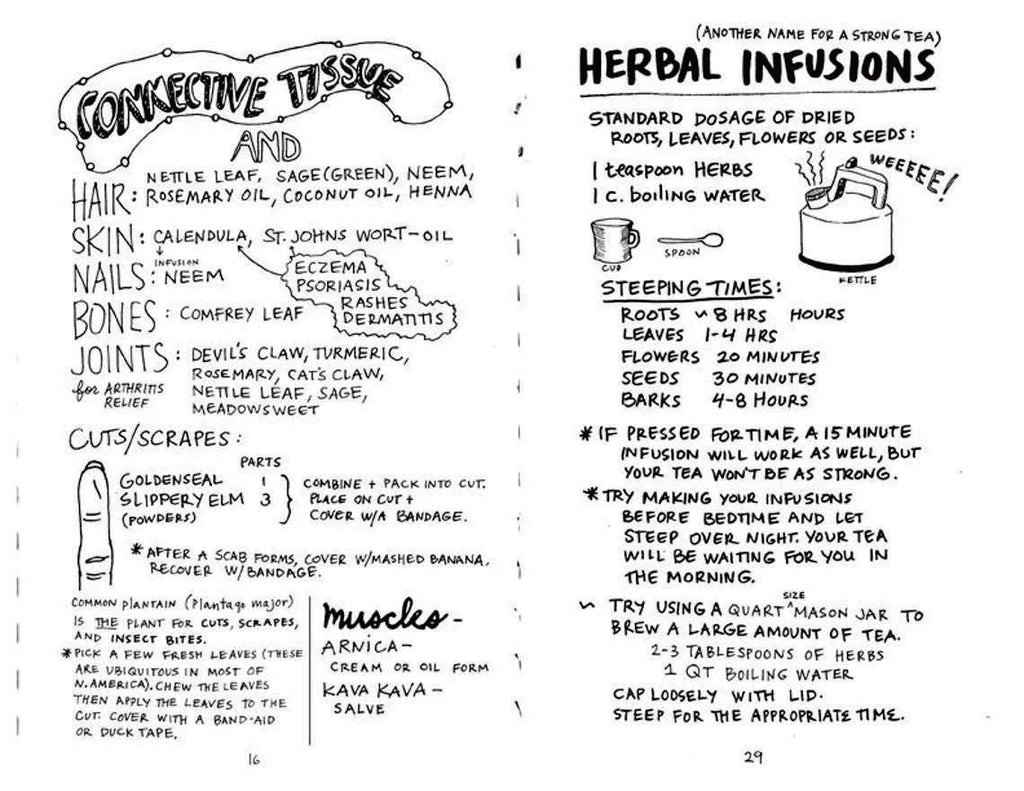 CONNECTIVE TISSUE
AND
HAIR: NETTLE LEAF, SAGE(GREEN), NEEM,
ROSEMARY OIL, COCONUT OIL, HENNA
SKIN: CALENDULA, ST. JOHNS WORT-OIL
INFUSION
ECZEMA
PSORIASIS
RASHES
DERMATITIS
NAILS: NEEM
BONES: COMFREY LEAF
JOINTS: DEVIL'S CLAW, TURMERIC,
for ARTHRITIS RELIEF
ROSEMARY, CAT'S CLAW,
NETTLE LEAF, SAGE,
MEADOWSWEET
CUTS/SCRAPES:
PARTS
GOLDENSEAL 1
SLIPPERY ELM 3
(POWDERS)
COMBINE + PACK INTO CUT.
PLACE ON CUT +
COVER W/A BANDAGE.
*AFTER A SCAB FORMS, COVER W/MASHED BANANA,
RECOVER W/BANDAGE.
COMMON PLANTAIN (Plantago major)
IS THE PLANT FOR CUTS, SCRAPES,
AND INSECT BITES.
*PICK A FEW FRESH LEAVES (THESE
ARE UBIQUITOUS IN MOST OF
N. AMERICA). CHEW THE LEAVES
THEN APPLY THE LEAVES TO THE
CUT. COVER WITH A BAND-AID
OR DUCK TAPE.
Muscles-
ARNICA-
CREAM OR OIL FORM
KAVA KAVA-
SALVE
16
(ANOTHER NAME FOR A STRONG TEA)
HERBAL INFUSIONS
STANDARD DOSAGE OF DRIED
ROOTS, LEAVES, FLOWERS OR SEEDS:
1 teaspoon HERBS
1 c. boiling WATER
WEEEEE!
CUP
SPOON
KETTLE
STEEPING TIMES:
ROOTS ~ 8 HRS HOURS
LEAVES 1-4 HRS
FLOWERS 20 MINUTES
SEEDS 30 MINUTES
BARKS 4-8 HOURS
*IF PRESSED FOR TIME, A 15 MINUTE
INFUSION WILL WORK AS WELL, BUT
YOUR TEA WON'T BE AS STRONG.
*TRY MAKING YOUR INFUSIONS
BEFORE BEDTIME AND LET
STEEP OVER NIGHT. YOUR TEA
WILL BE WAITING FOR YOU IN
THE MORNING.
~ TRY USING A QUART ^SIZE MASON JAR TO
BREW A LARGE AMOUNT OF TEA.
2-3 TABLESPOONS OF HERBS
1 QT BOILING WATER
CAP LOOSELY WITH LID.
STEEP FOR THE APPROPRIATE TIME.
29